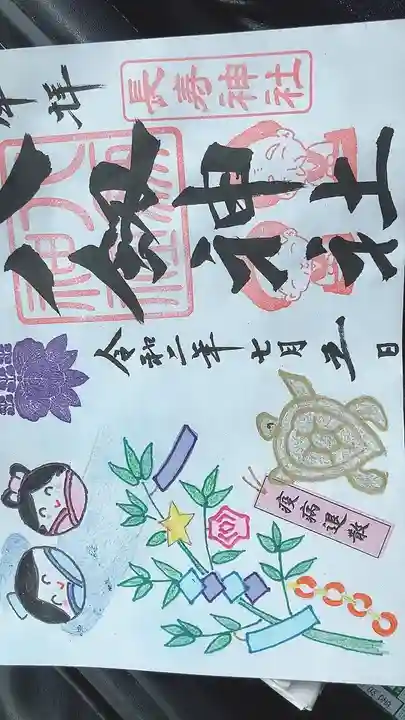 奉拝
長寿神社
八剱神社
令和二年七月五日
疫病退散